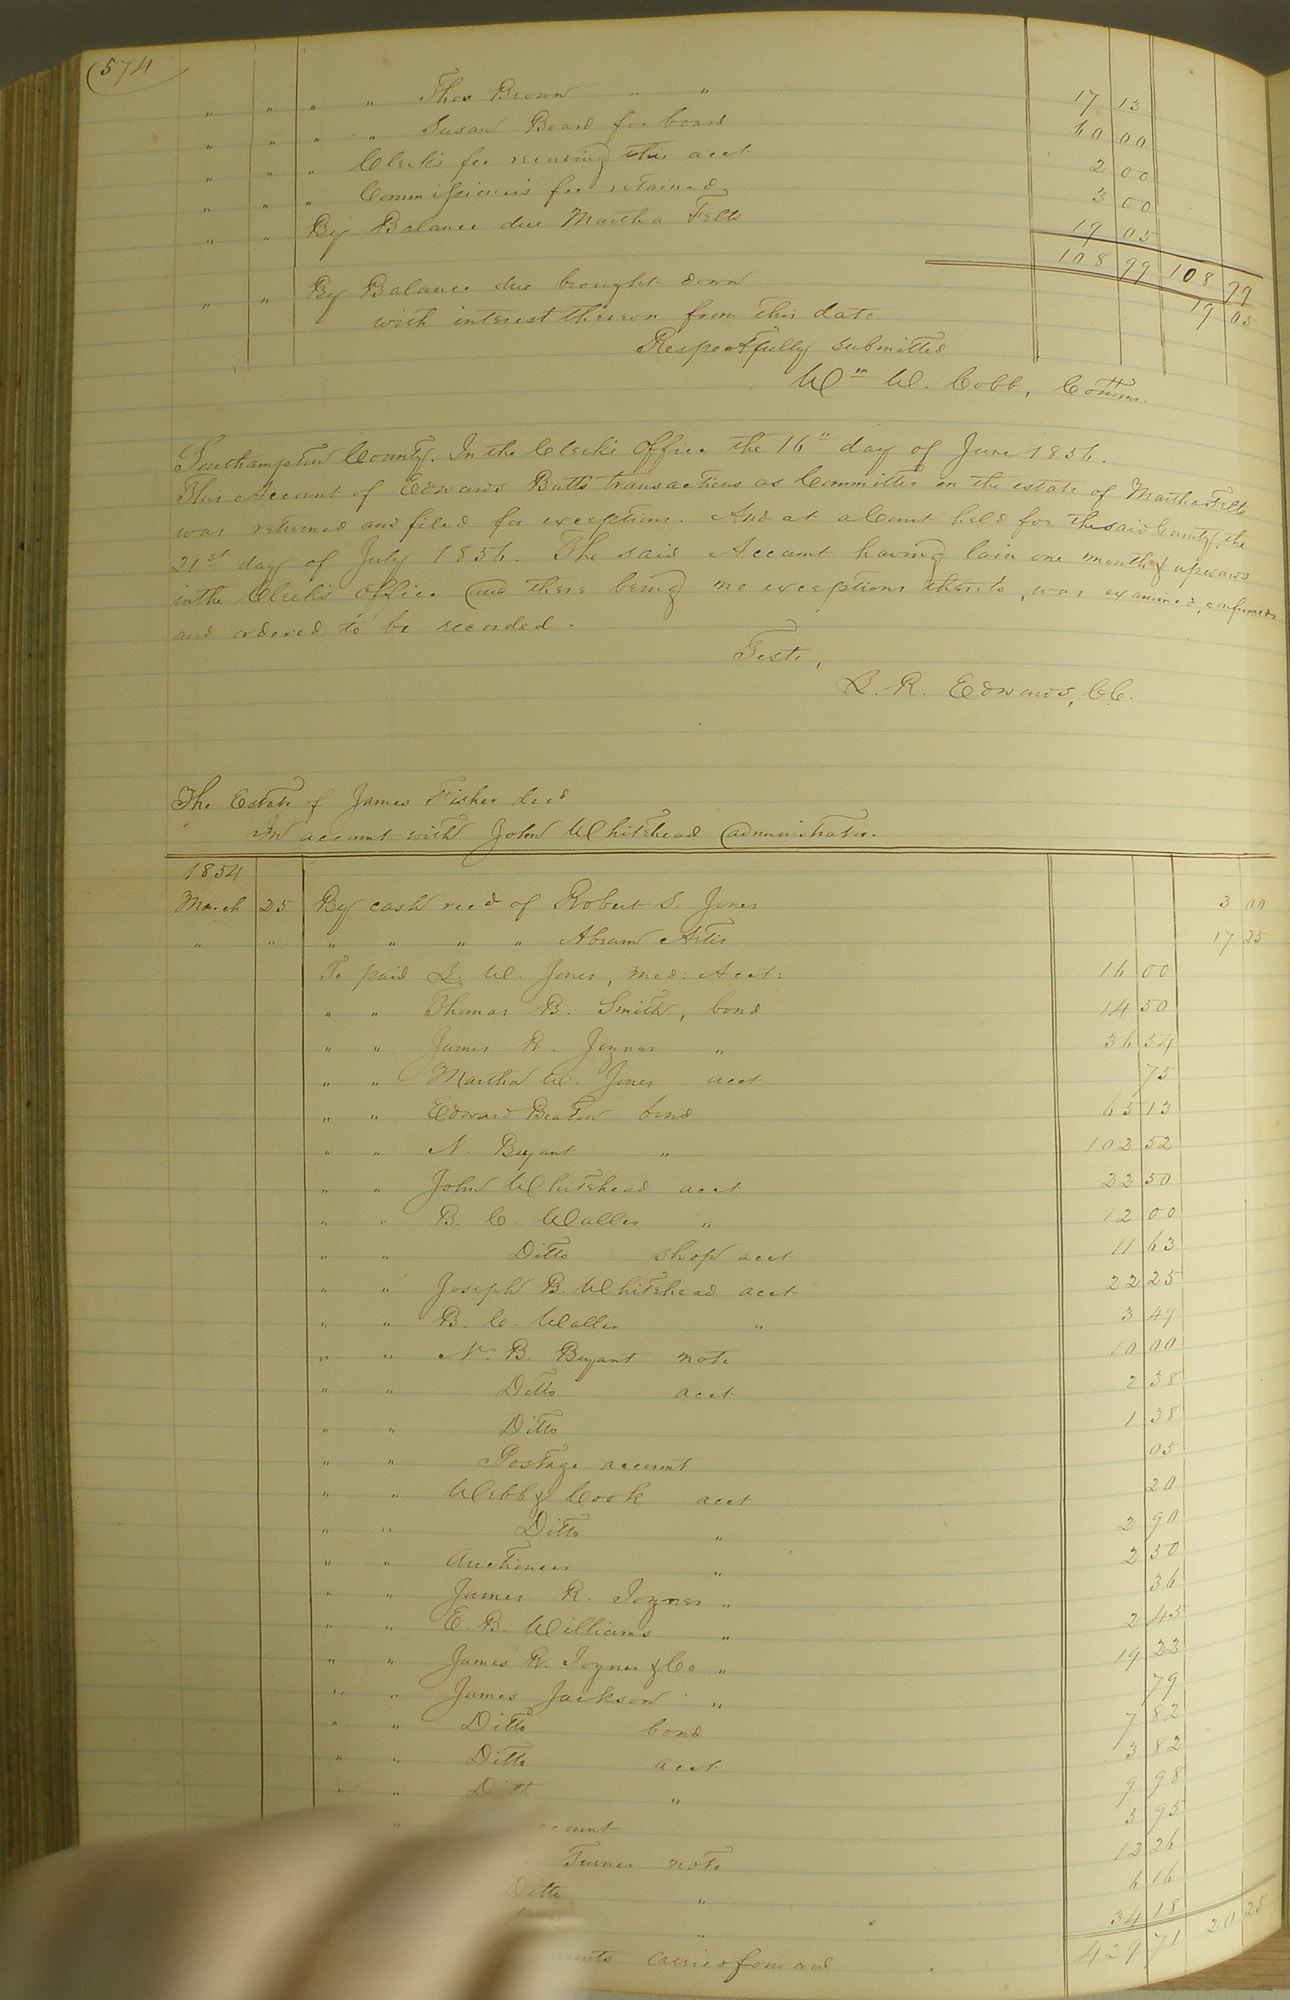 574
" " " " Thos Brown " " 17 13
" " " " Susan Beard for board 60 00
" " " Clerk's fee recording this acct 2 00
" " " Commissioner's fee retained 3 00
" " By Balance due Martha Felts 19 05
108 99 108 99
" " By Balance due brought down 19 05
with interest thereon from this date
Respectfully submitted
Wm W. Cobb, Comm.
Southampton County. In the Clerk's Office the 16" day of June 1856.
This Account of Edward Butts transactions as Committee on the estate of Martha Felts
was returned and filed for exceptions. And at a Court held for the said County, the
21st day of July 1856. The said Account having lain one month & upwards
in the Clerk's Office and there being no exceptions thereto, was examined, confirmed
and ordered to be recorded.
Teste,
L. R. Edwards, C.C.
The Estate of James Fisher decd
In account with John Whitehead administrator.
1854
March 25 By cash recd of Robert S. Jones 3 00
" " " " " " Abram Artis 17 25
To paid L. W. Jones, med: Acct: 16 00
" " Thomas B. Smith, bond 14 50
" " James R. Joyner " 36 34
" " Martha W. Jones acct 75
" " Edward Beaton bond 65 13
" " N. Bryant " 102 52
" " John Whitehead acct 22 50
" " B. C. Waller " 12 00
" " Ditto shop acct 11 63
" " Joseph B. Whitehead acct 22 25
" " B. C. Waller " 3 49
" " N. B. Bryant note 10 00
" " Ditto acct 2 38
" " Ditto 1 38
" " Postage account 05
" " Webb & Cook acct 20
" " Ditto " 2 90
" " Auctioneer " 2 50
" " James R. Joyner " 36
" " E. B. Williams " 2 45
" " James R. Joyner & Co " 19 33
" " James Jackson " 79
" " Ditto bond 7 82
" " Ditto acct 3 82
" " Ditto " 9 98
" 5 95
Turner note 12 26
Ditto " 6 16
" 34 18
carried forward 429 71 20 25